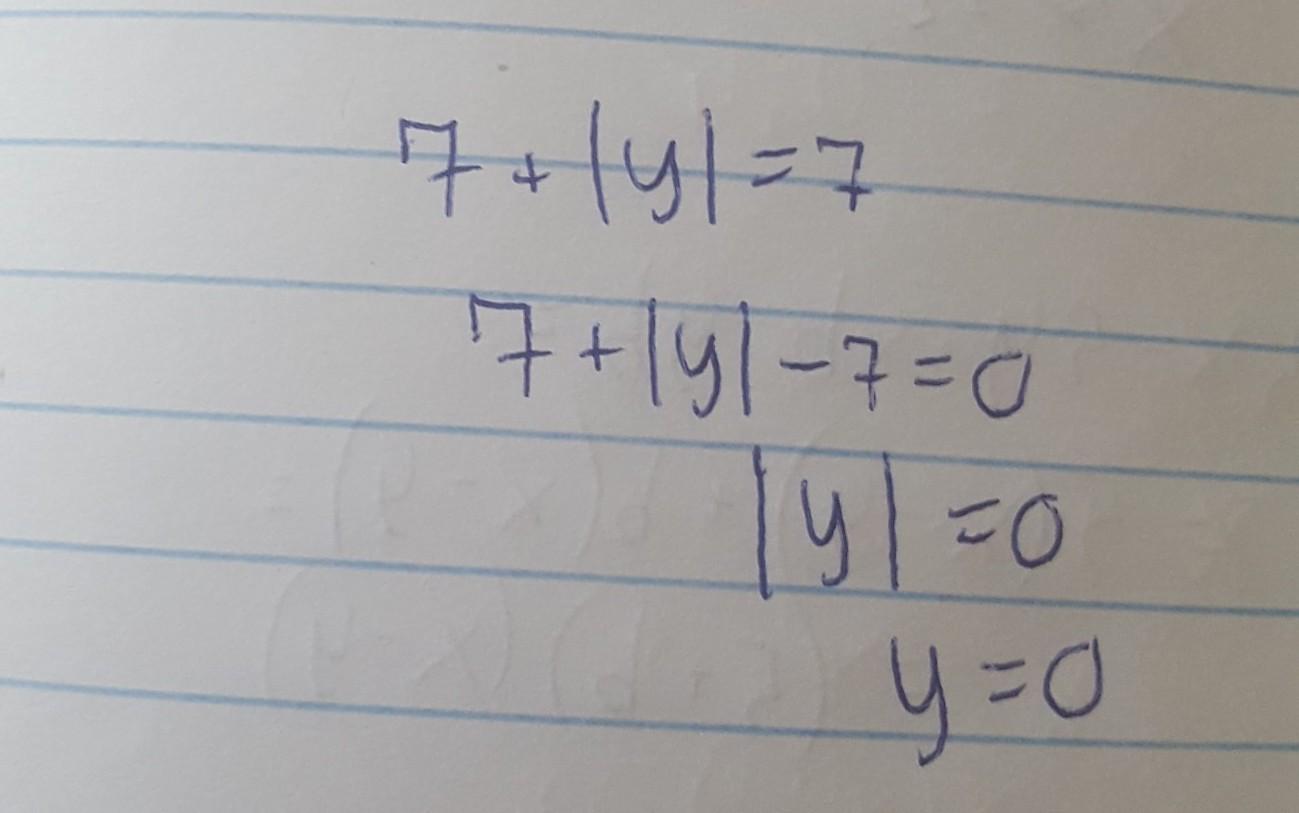 7 + |y| = 7
7 + |y| - 7 = 0
|y| = 0
y = 0